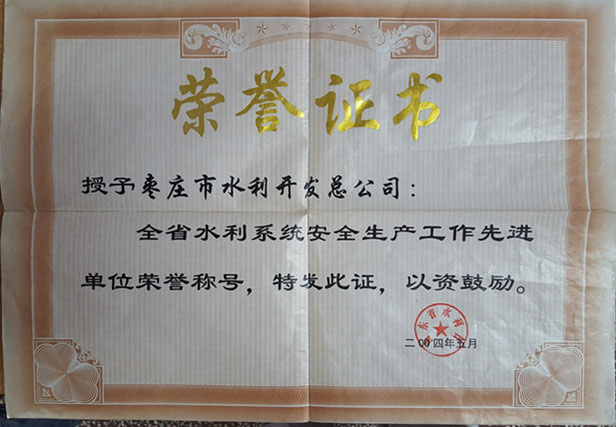 荣誉证书
授予枣庄市水利开发总公司：
全省水利系统安全生产工作先进
单位荣誉称号，特发此证，以资鼓励。
东省水利
二00四年五月